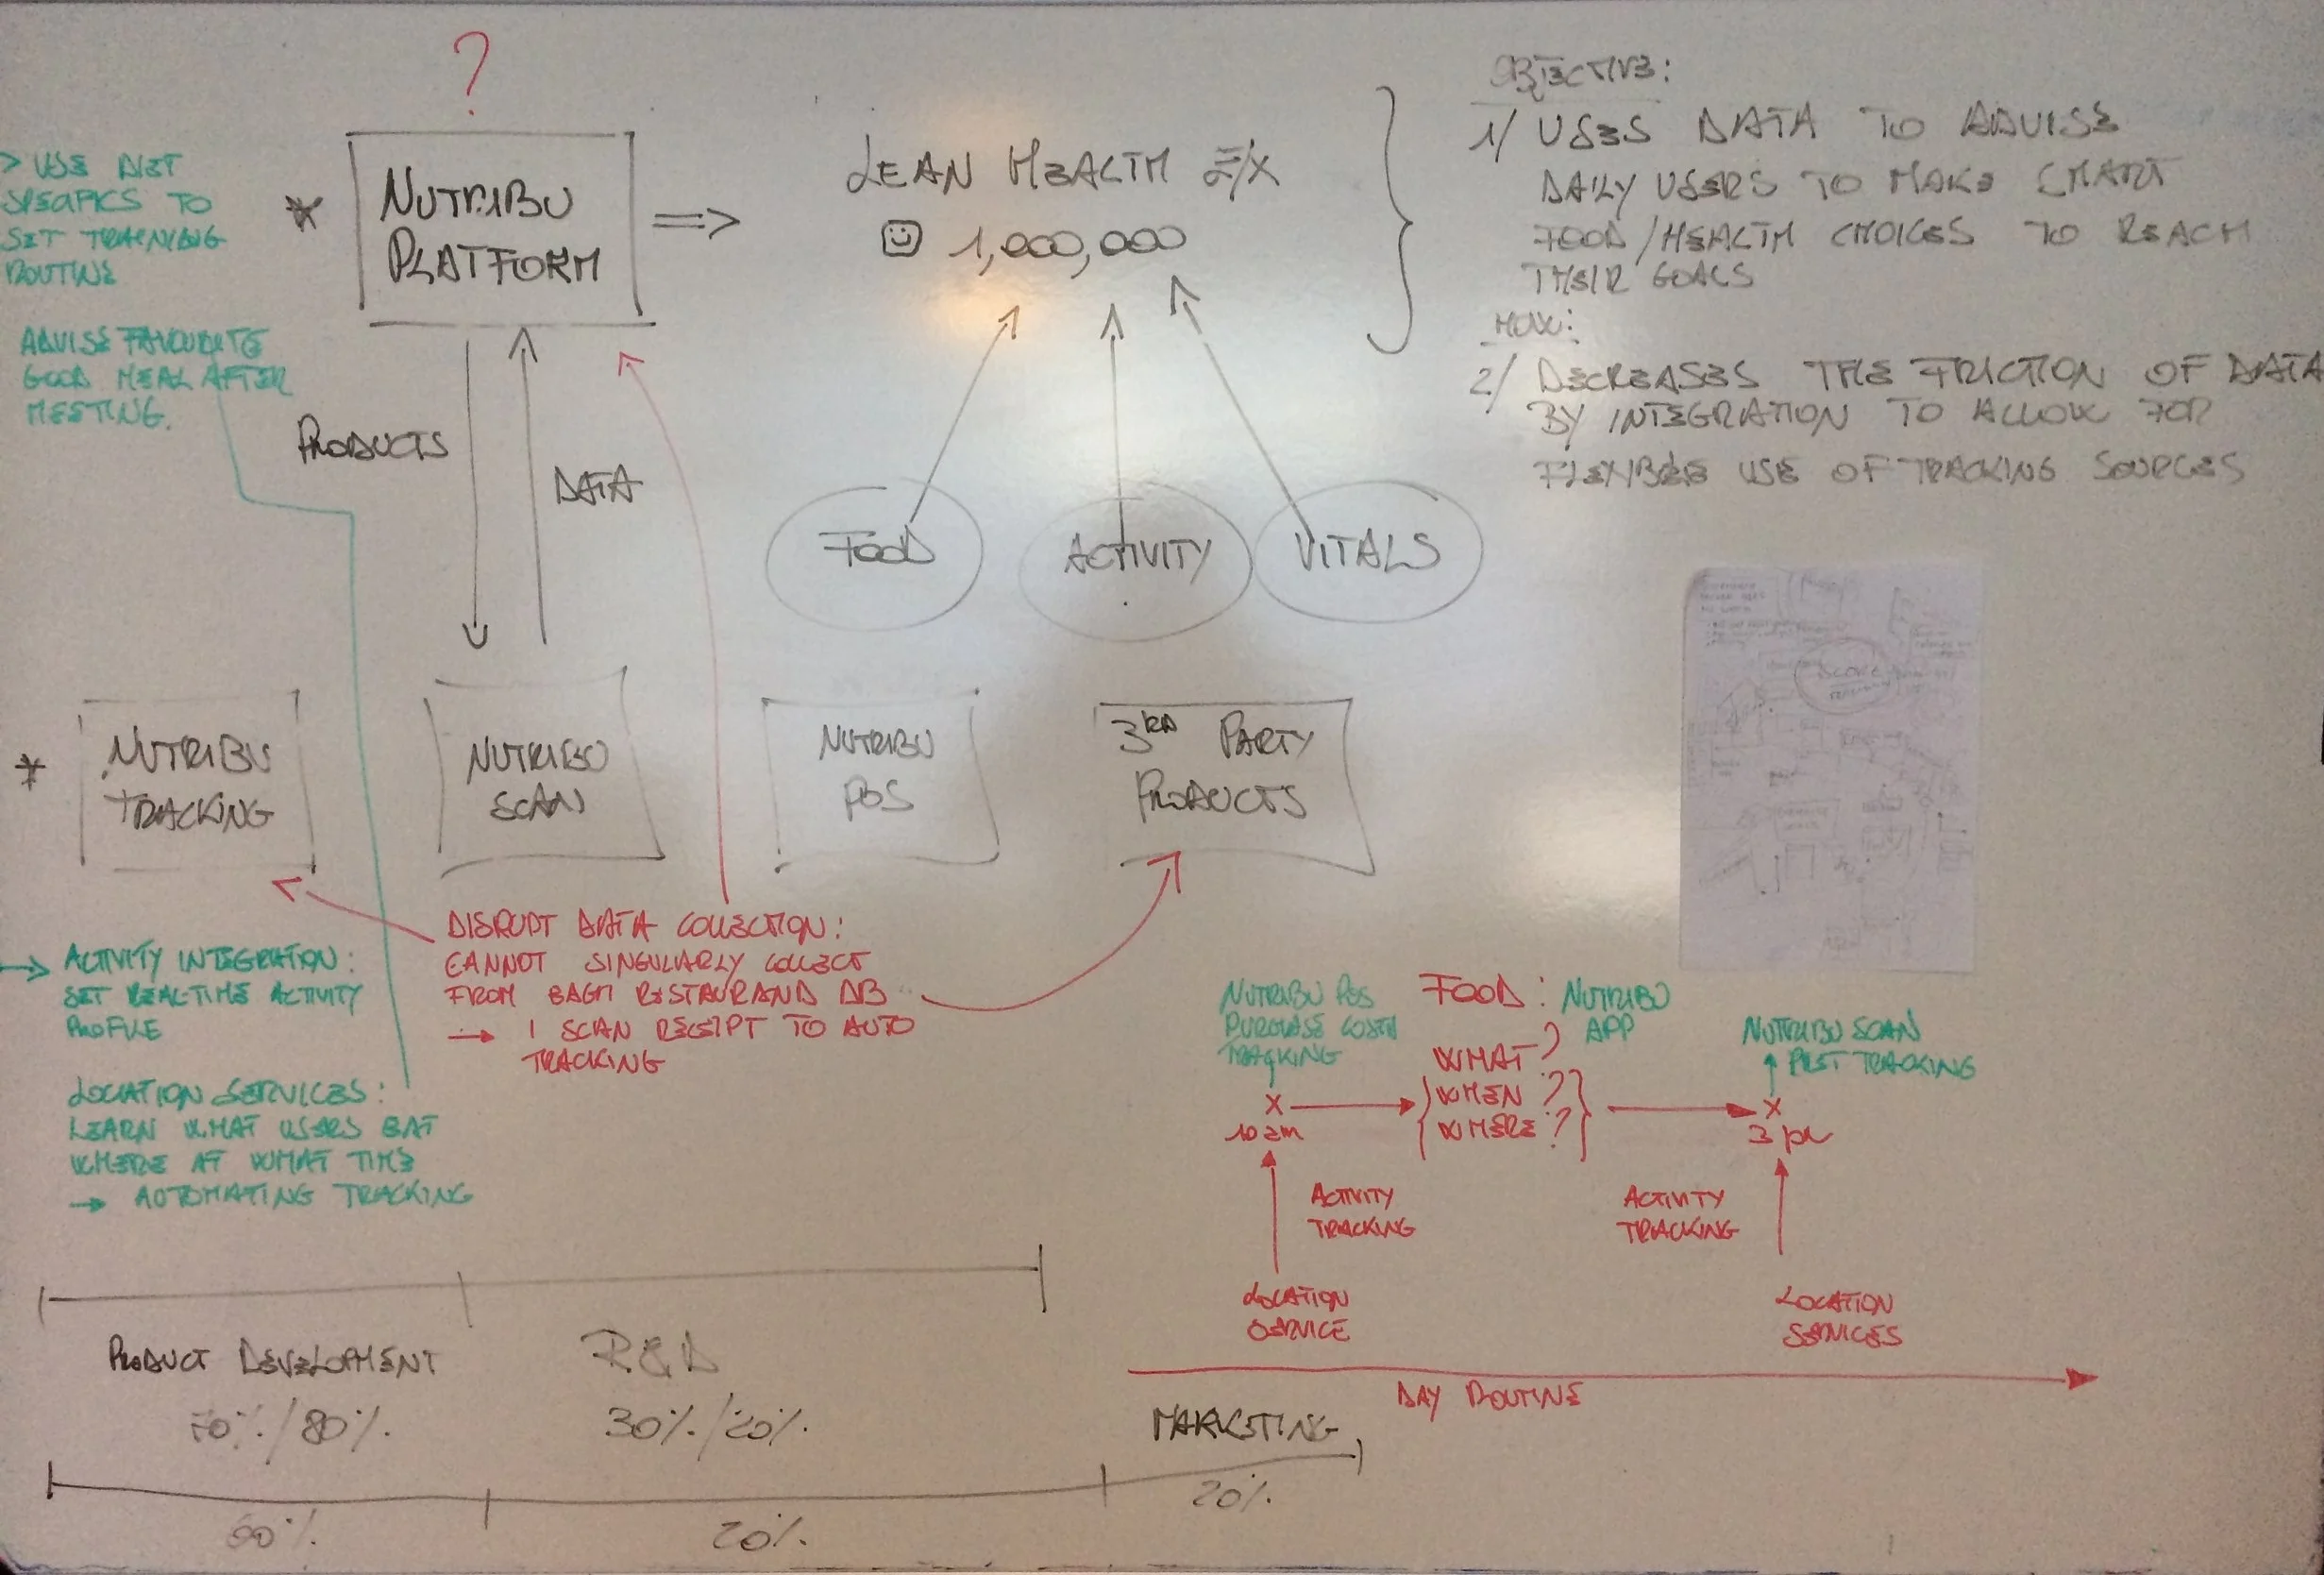 ?
> USE DIET
SPECIFICS TO
SET TRAINING
ROUTINE
*
NUTRIBU
PLATFORM
⇒
LEAN HEALTH
1,000,000
OBJECTIVE:
1/ USES DATA TO ADVISE
DAILY USERS TO MAKE SMART
FOOD/HEALTH CHOICES TO REACH
THEIR GOALS
HOW:
2/ DECREASES THE FRICTION OF DATA
BY INTEGRATION TO ALLOW FOR
FLEXIBLE USE OF TRACKING SOURCES
ADVISE FAVOURITE
GOOD MEAL AFTER
MEETING.
PRODUCTS
DATA
FOOD
ACTIVITY
VITALS
*
NUTRIBU
TRACKING
NUTRIBU
SCAN
NUTRIBU
POS
3RD PARTY
PRODUCTS
SCORE
→ ACTIVITY INTEGRATION:
SET REALTIME ACTIVITY
PROFILE
DISRUPT DATA COLLECTION:
CANNOT SINGULARLY COLLECT
FROM EACH RESTAURAND DB
→ 1 SCAN RECEIPT TO AUTO
TRACKING
LOCATION SERVICES:
LEARN WHAT USERS EAT
WHERE AT WHAT TIME
→ AUTOMATING TRACKING
NUTRIBU POS
PURCHASE
TRACKING
FOOD:
NUTRIBU
APP
WHAT?
WHEN?
WHERE?
NUTRIBU SCAN
PAST TRACKING
X
10 am
X
3 pm
ACTIVITY
TRACKING
ACTIVITY
TRACKING
LOCATION
SERVICE
LOCATION
SERVICES
DAY ROUTINE
PRODUCT DEVELOPMENT
70%/80%
R&D
30%/20%
MARKETING
60%
20%
20%